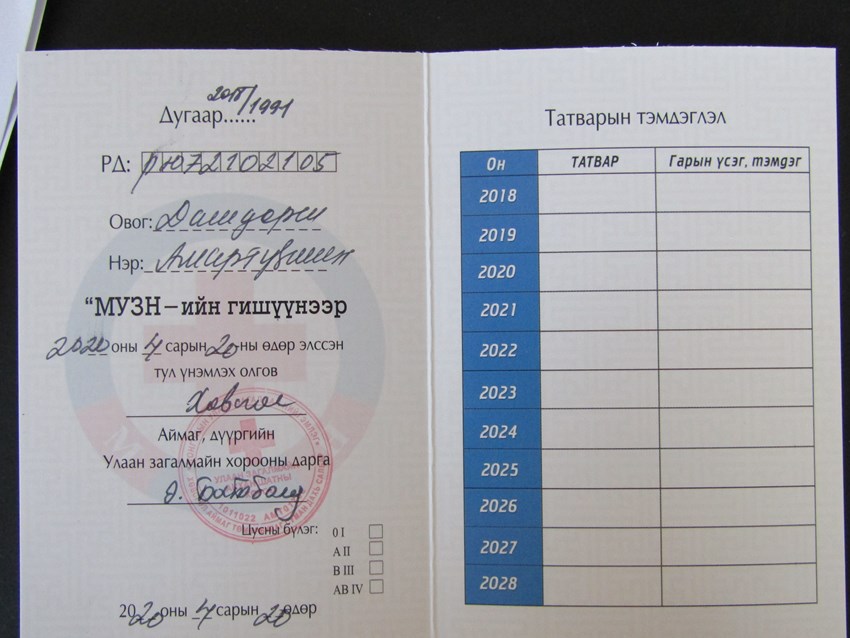 Дугаар...... 2018/1991
РД: РЮ72102105
Овог: Дашдорж
Нэр: Амартүвшин
“МУЗН – ийн гишүүнээр
2020 оны 4 сарын 20 ны өдөр элссэн
тул үнэмлэх олгов
Хөвсгөл
Аймаг, дүүргийн
Улаан загалмайн хорооны дарга
Ө. Батболд
Цусны бүлэг:
0 I
A II
B III
AB IV
2020 оны 4 сарын 20 өдөр
Татварын тэмдэглэл
Он ТАТВАР Гарын үсэг, тэмдэг
2018
2019
2020
2021
2022
2023
2024
2025
2026
2027
2028